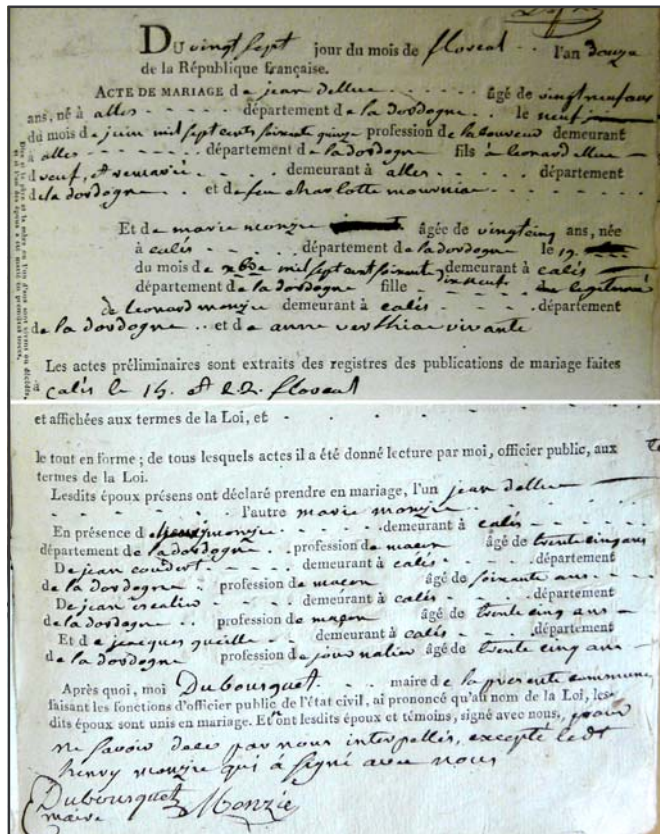 Du vingt sept jour du mois de floreal . . l'an douze
de la République française.
Acte de mariage de jean dellue - - - - - âgé de vingt neuf ans
ans, né à alles - - - - département de la dordogne . . le neuf
du mois de juin mil sept cents soixante quinze profession de laboureur demeurant
à alles - - - - - département de la dordogne fils à leonard dellue -
veuf, et remarié - - demeurant à alles - - - département
de la dordogne . . et de feu charlotte mourniac - - - -
Et de marie monzie âgée de vingt cinq ans, née
à calés - - - - département de la dordogne le 19
du mois de xbre mil sept cent soixante dix neuf demeurant à calés
département de la dordogne fille legitime
de leonard monzie demeurant à calés - - - département
de la dordogne . . et de anne verthiac vivante
Les actes préliminaires sont extraits des registres des publications de mariage faites
à calés le 15. et 22. floreal
et affichées aux termes de la Loi, et - - - - -
le tout en forme ; de tous lesquels actes il a été donné lecture par moi, officier public, aux
termes de la Loi.
Lesdits époux présens ont déclaré prendre en mariage, l'un jean dellue
- - - - - - - l'autre marie monzie - - - -
En présence d monzie - - - - demeurant à calés - - - -
département de la dordogne . . profession de maçon âgé de trente cinq ans
De jean coudert - - - - demeurant à calés - - - - département
de la dordogne . . profession de maçon âgé de soixante ans - - -
De jean escalier - - - demeurant à calés - - - - département
de la dordogne . . profession de maçon âgé de trente cinq ans -
Et de jacques queille - - demeurant à calés - - - - département
de la dordogne profession de journalier âgé de trente cinq ans -
Après quoi, moi Dubousquet . . . maire de la presente commune
faisant les fonctions d'officier public de l'état civil, ai prononcé qu'au nom de la Loi, les-
dits époux sont unis en mariage. Et n'ont lesdits époux et témoins, signé avec nous, pour
ne savoir de ce par nous interpellés, excepté ledt
henry monzie qui à signé avec nous
Dubousquet Monzie
maire